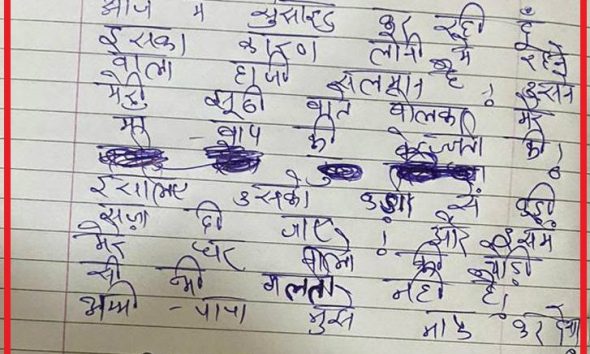 आज मैं सुसाइड कर रही हूँ
इसका कारण लोनी में रहने
वाला हाजी सलमान है ! उसने
मेरी झूठी बात बोलकर मेरे
माँ - बाप की बेज्जती की !
इसलिए उसको कड़ी से कड़ी
सज़ा दी जाए ! और इसमें
मेरे घर वालो की थोड़ी
सी भी गलती नही है !
मम्मी - पापा मुझे माफ कर देना